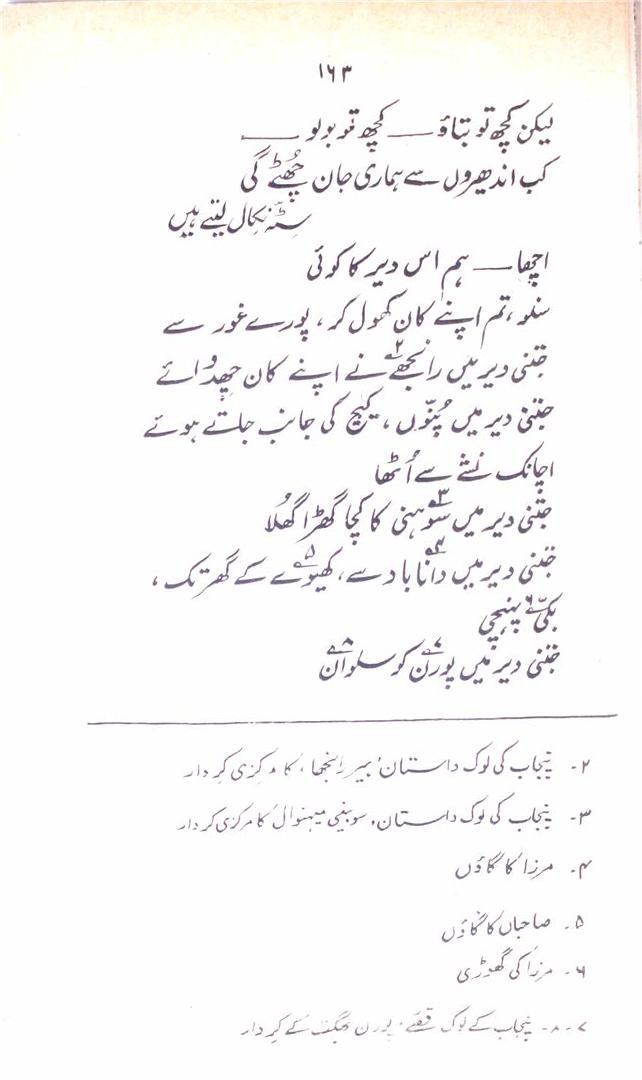 ۱۶۳
لیکن کچھ تو بتاؤ — کچھ تو بولو —
کب اندھیروں سے ہماری جان چُھٹے گی
سِٹّہ نکال لیتے ہیں
اچھا — ہم اس دیر کا کوئی
سنو، تم اپنے کان کھول کر، پورے غور سے
جتنی دیر میں رانجھے۲ نے اپنے کان چھِدوائے
جتنی دیر میں پُنّوں، کیچ کی جانب جاتے ہوئے
اچانک نشے سے اُٹھا
جتنی دیر میں سوہنی۳ کا کچا گھڑا گھُلا
جتنی دیر میں دانا باد۴ سے، کھیوے۵ کے گھر تک،
بکّی۶ پہنچی
جتنی دیر میں پورن۷ کو سلوان۸
۲۔ پنجاب کی لوک داستان ’ہیر رانجھا‘ کا مرکزی کردار
۳۔ پنجاب کی لوک داستان، سوہنی مہینوال کا مرکزی کردار
۴۔ مرزا کا گاؤں
۵۔ صاحباں کا گاؤں
۶۔ مرزا کی گھوڑی
۷۔۸۔ پنجاب کے لوک قصّے، پورن بھگت کے کردار